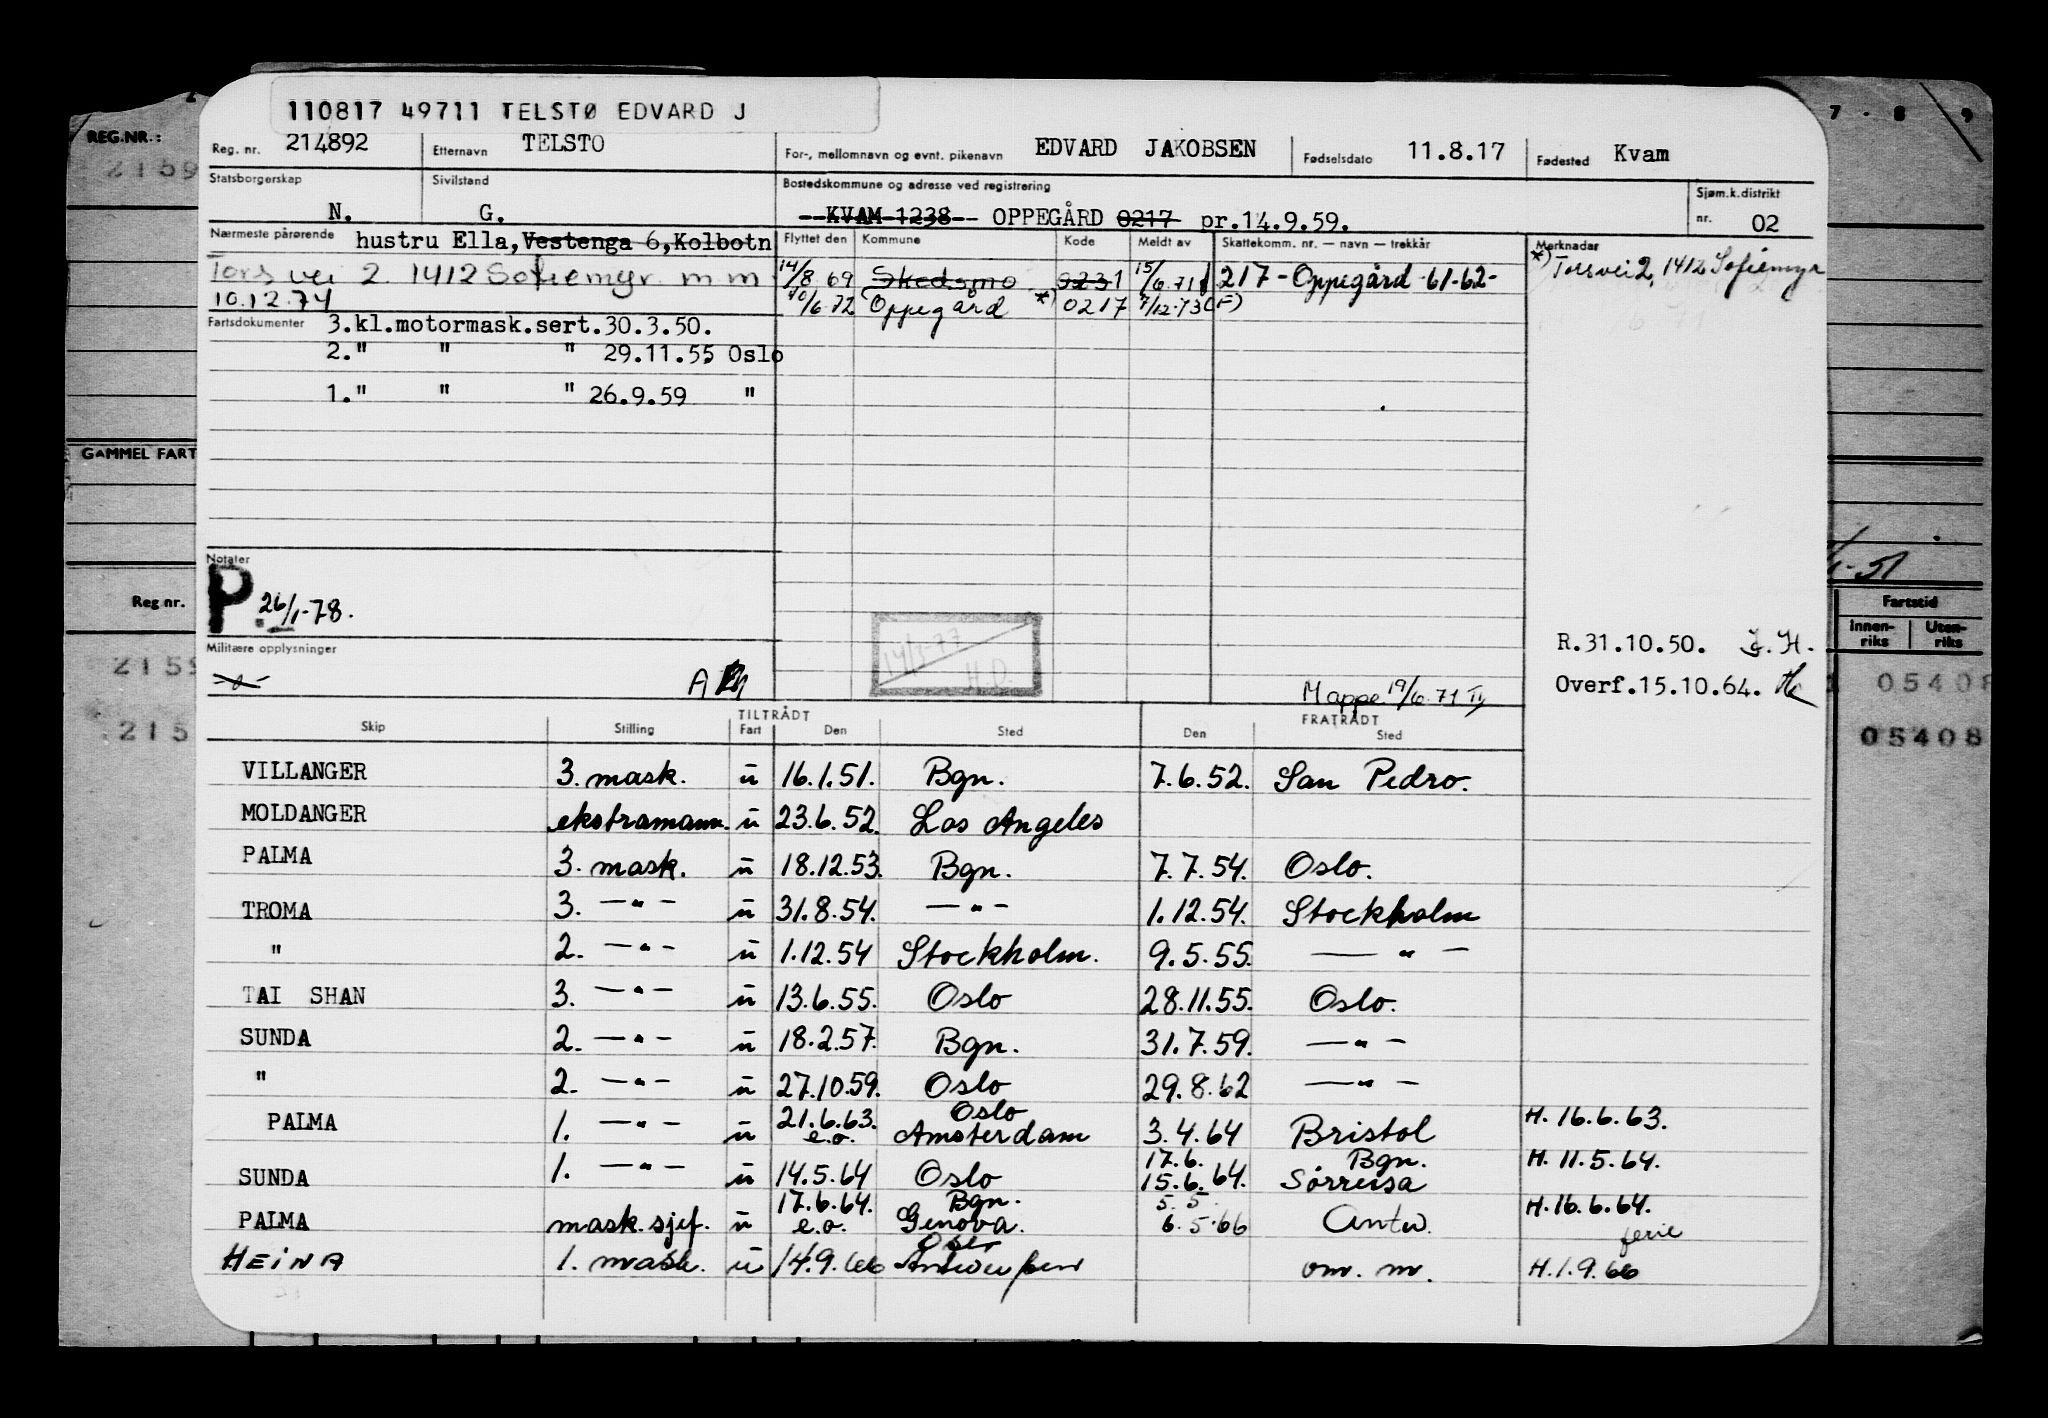 110817 49711 TELSTØ EDVARD J
7 - 8 9
REG.NR.:
2159
Reg. nr. 214892 Etternavn TELSTO For-, mellomnavn og evnt. pikenavn EDVARD JAKOBSEN Fødselsdato 11.8.17 Fødested Kvam
Statsborgerskap N. Sivilstand G. Bostedskommune og adresse ved registrering KVAM 1238 OPPEGÅRD 0217 pr.14.9.59. Sjøm.k.distrikt nr. 02
Nærmeste pårørende hustru Ella, Vestenga 6, Kolbotn
Tors vei 2. 1412 Sofiemyr. m m
10.12.74
Flyttet den Kommune Kode Meldt av Skattekomm. nr. — navn — trekkår Merknader
14/8 69 Skedsmo 0231 15/6.71 217 - Oppegård -61-62- *) Torsvei 2, 1412 Sofiemyr
10/6.72 Oppegård *) 0217 7/12-73 (F)
Fartsdokumenter 3.kl.motormask.sert.30.3.50.
2." " " 29.11.55 Oslo
1." " " 26.9.59 "
GAMMEL FART
Notater
P. 26/1-78.
Reg nr.
Militære opplysninger
-o-
A
14/7-77
H.O.
Mappe 19/6.71
R.31.10.50. J.H.
Overf.15.10.64.
-51
Fartstid
Innen-riks Uten-riks
2159
05408
215
05408
TILTRÅDT FRATRÅDT
Skip Stilling Fart Den Sted Den Sted
VILLANGER 3. mask. u 16.1.51. Bgn. 7.6.52. San Pedro.
MOLDANGER ekstramann. u 23.6.52. Los Angeles
PALMA 3. mask. u 18.12.53. Bgn. 7.7.54. Oslo.
TROMA 3. —"— u 31.8.54. —"— 1.12.54. Stockholm
" 2. —"— u 1.12.54 Stockholm. 9.5.55. —"—
TAI SHAN 3. —"— u 13.6.55. Oslo 28.11.55. Oslo.
SUNDA 2. —"— u 18.2.57. Bgn. 31.7.59. —"—
" 2. —"— u 27.10.59. Oslo 29.8.62 —"—
PALMA 1. —"— u 21.6.63. e.o. Oslo Amsterdam 3.4.64 Bristol H.16.6.63.
SUNDA 1. —"— u 14.5.64 Oslo 17.6. 15.6.64. Bgn. Sørreisa H.11.5.64.
PALMA mask.sjef. u 17.6.64. e.o. Bgn. Genova. 5.5. 6.5.66 Antw. H.16.6.64. ferie
HEINA 1. mask. u 14.9.66 Oslo Antwerpen om. m. H.1.9.66